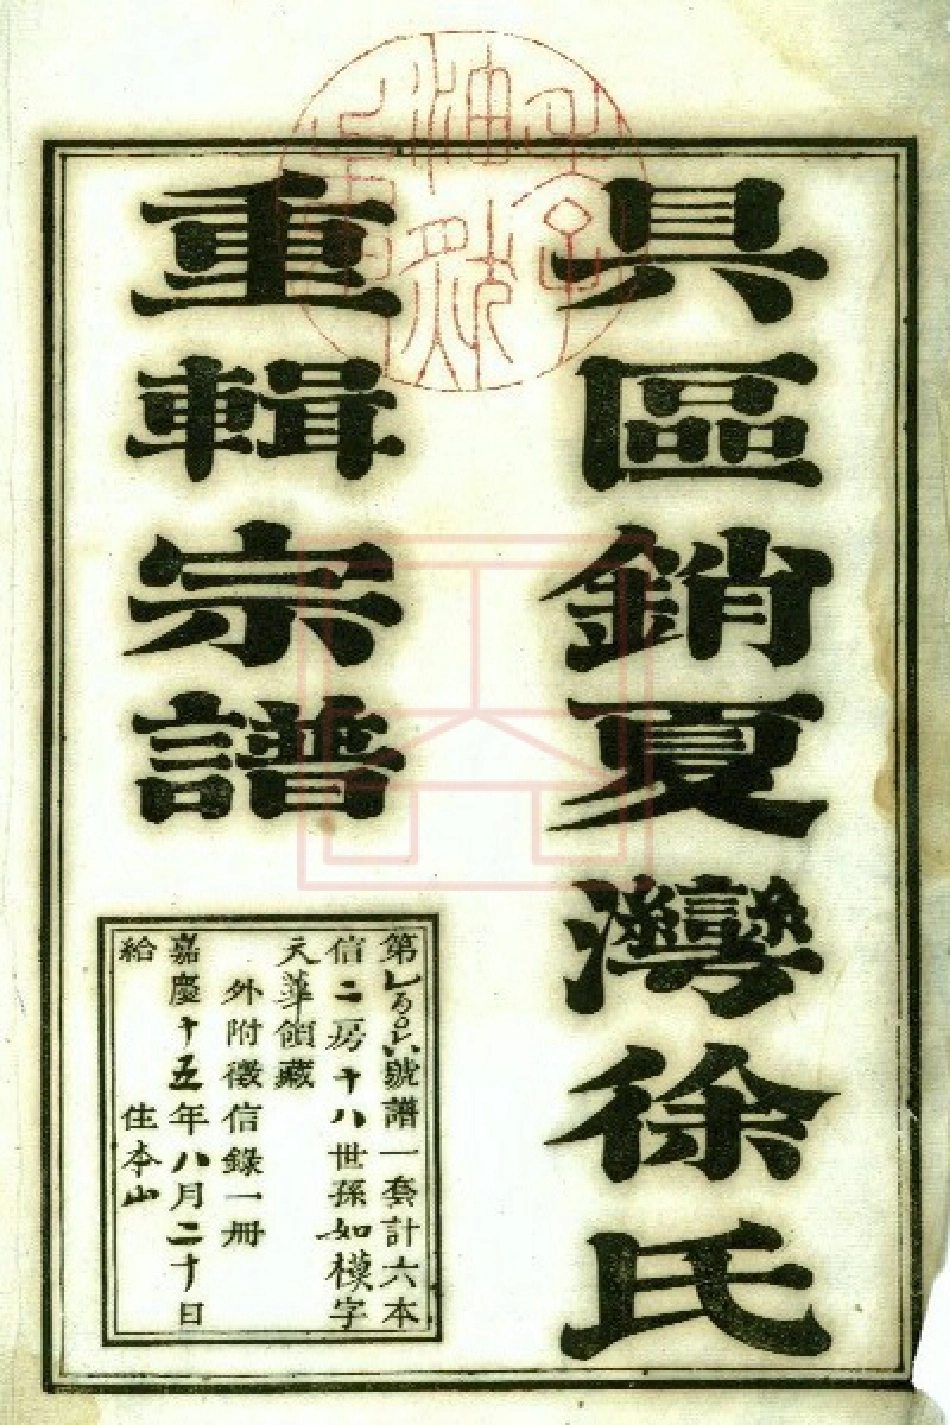 具區銷夏灣徐氏
重輯宗譜
第 號譜一套計六本
信二房十八世孫如模字
天華領藏
外附徵信錄一冊
嘉慶十五年八月二十日
給 住本山